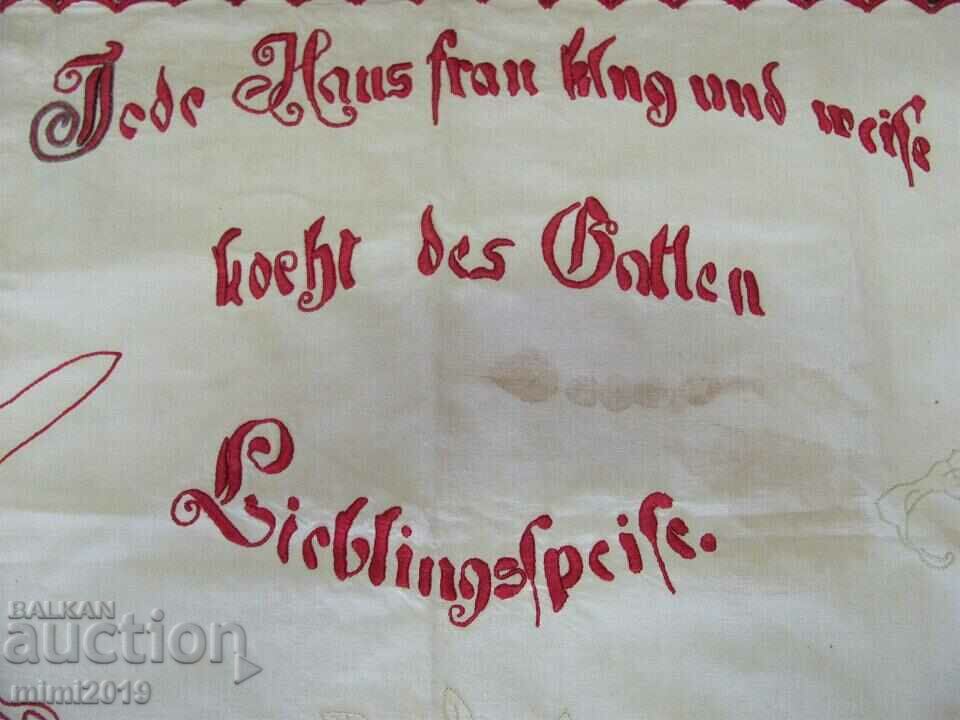 Jede Hausfrau klug und weise
kocht des Gatten
Lieblingsspeise.
BALKAN
auction
mimi2019